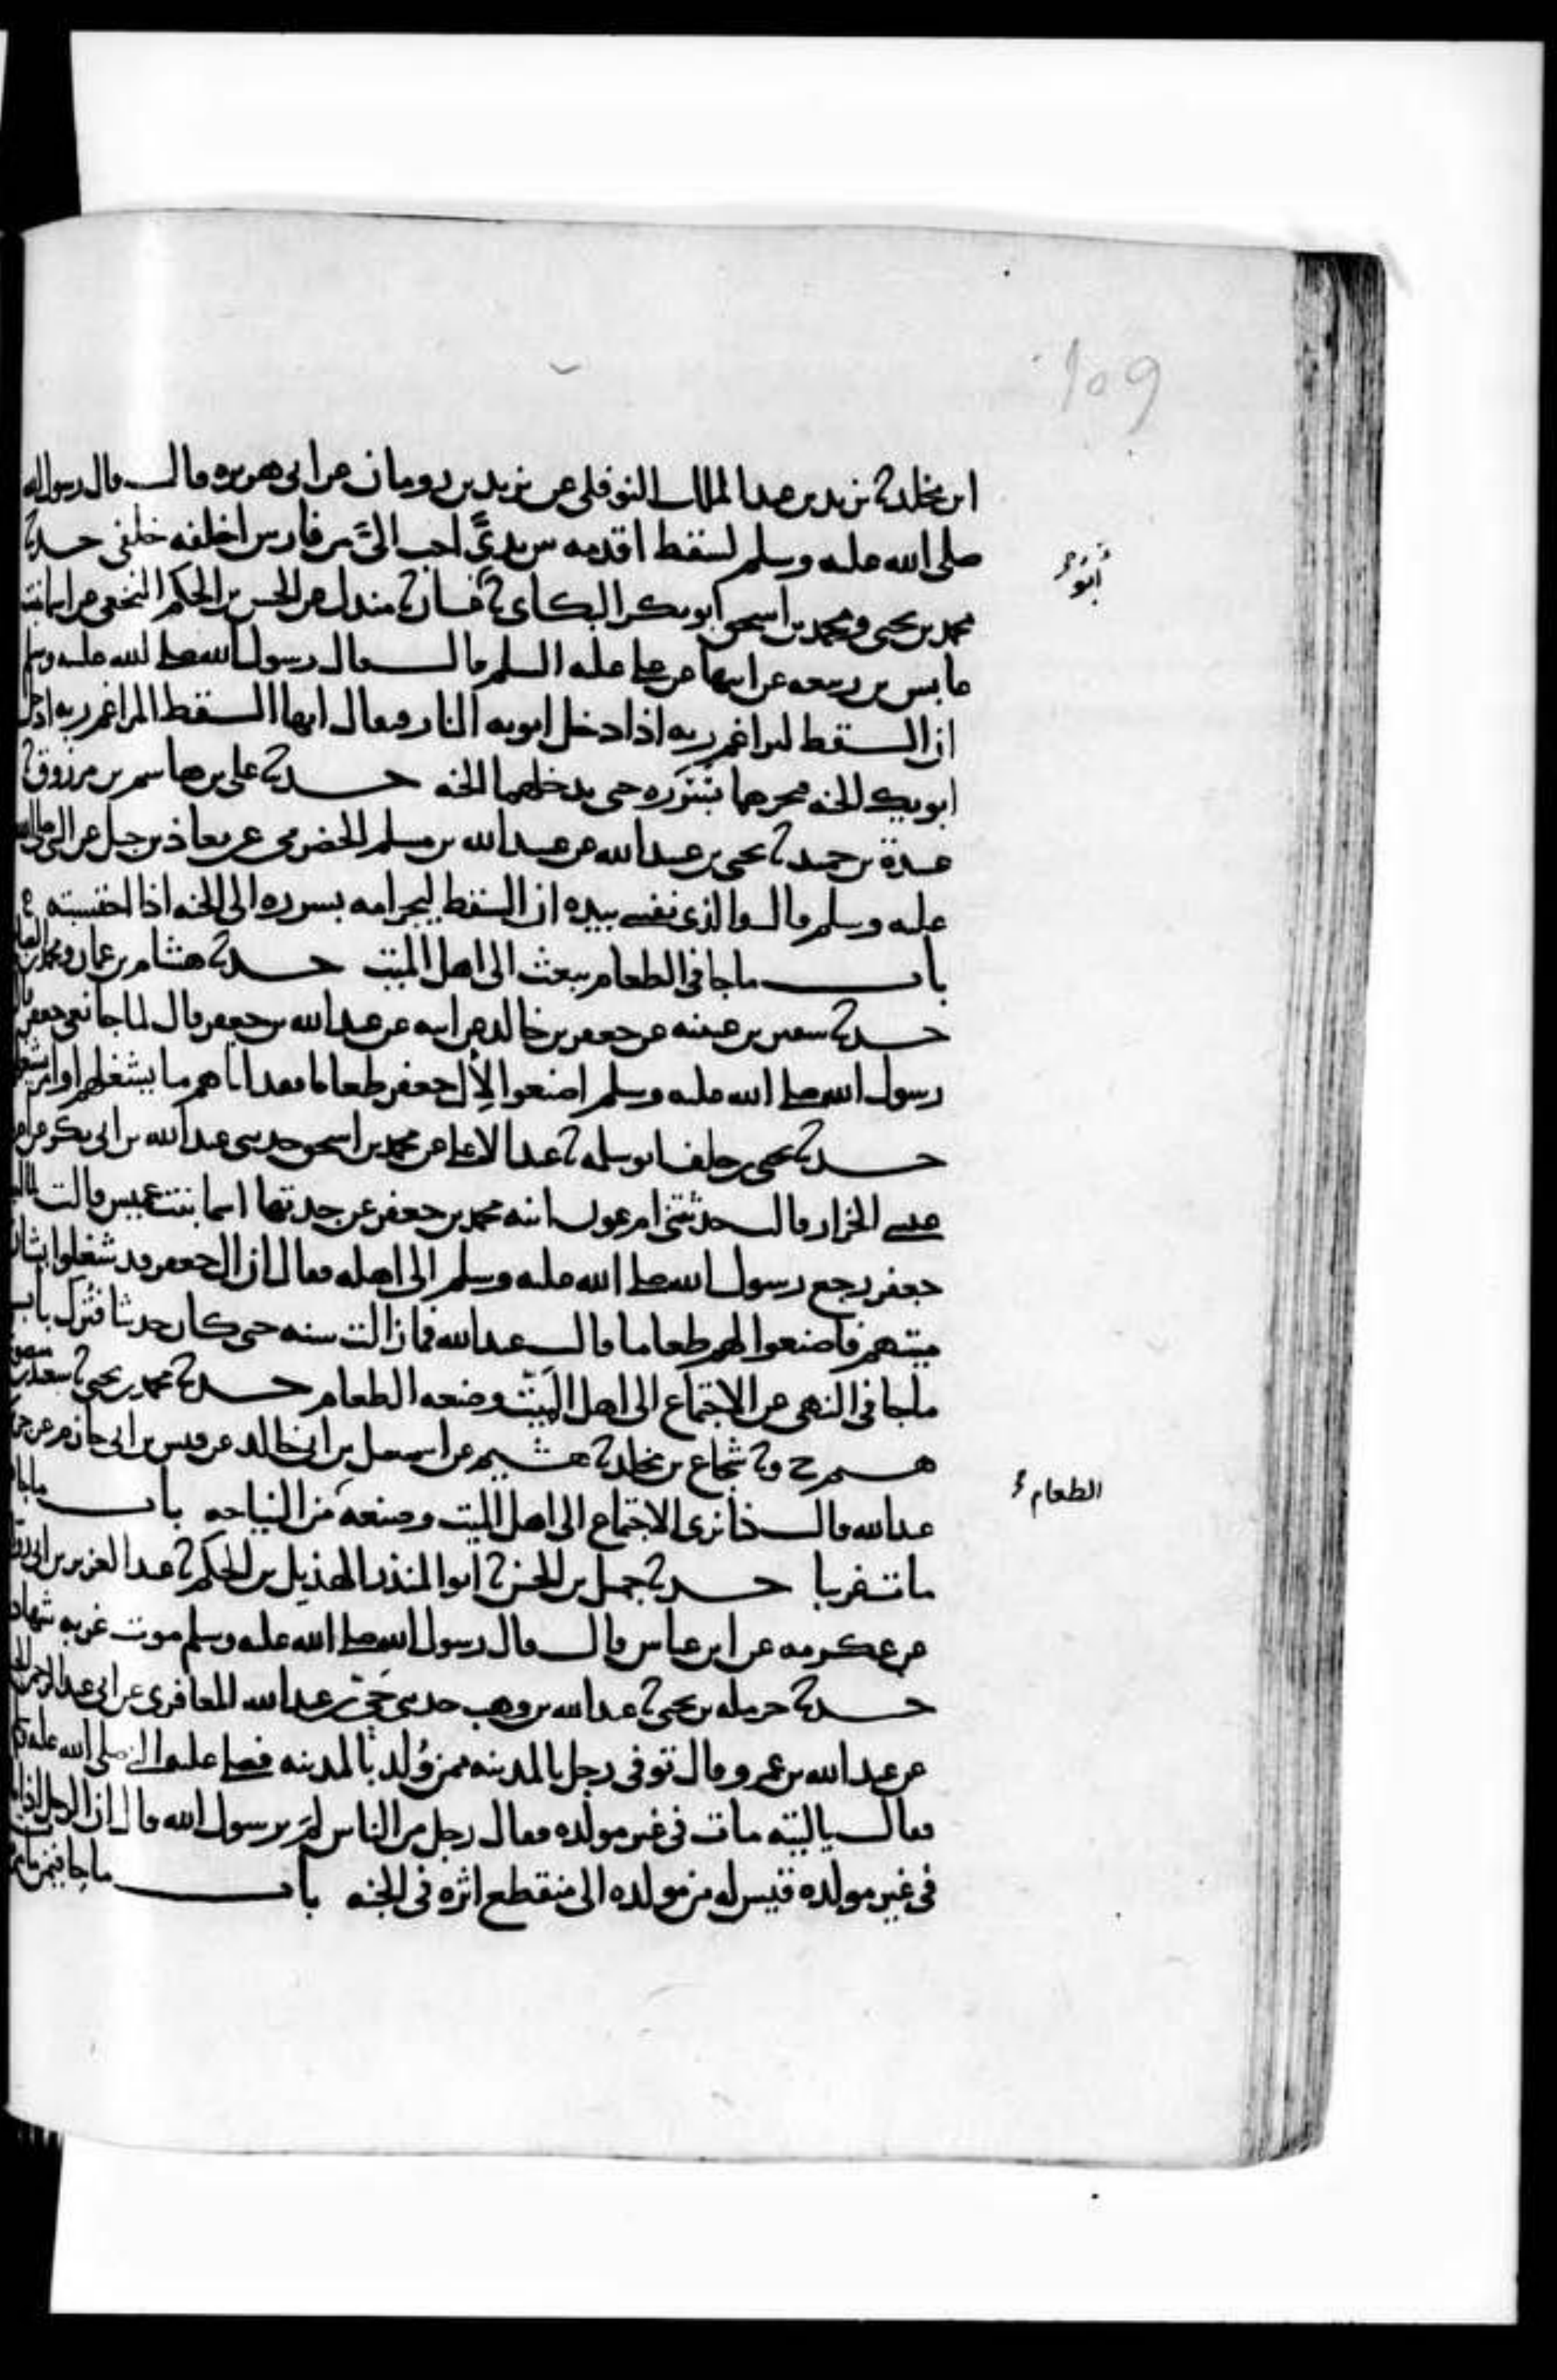 109
ابن مخلد ثنا يزيد بن عبد الملك النوفلي عن يزيد بن رومان عن ابي هريره قال قال رسول الله
صلى الله عليه وسلم لسقط اقدمه بين يديَّ احب اليَّ من فارس اخلفه خلفي حدثنا
محمد بن يحيى ومحمد بن اسحق ابو بكر البكاي ثنا ابو غسان ثنا مندل عن الحسن بن الحكم النخعي عن اسما بنت
عابس بن ربيعه عن ابيها عن علي عليه السلم قال قال رسول الله صلى الله عليه وسلم
ان السقط ليراغم ربه اذا ادخل ابويه النار فيقال ايها السقط المراغم ربه ادخل
ابويك الجنه فيجرهما بسرره حتى يدخلهما الجنه حدثنا علي بن هاشم بن مرزوق ثنا
عبيدة بن حميد ثنا يحيى بن عبيد الله عن عبيد الله بن مسلم الحضرمي عن معاذ بن جبل عن النبي صلى الله
عليه وسلم قال والذي نفسي بيده ان السقط ليجر امه بسرره الى الجنه اذا احتسبته
باب ماجا في الطعام يبعث الى اهل الميت حدثنا هشام بن عمار ومحمد بن الصباح
حدثنا سفين بن عيينه عن جعفر بن خالد عن ابيه عن عبد الله بن جعفر قال لما جا نعي جعفر قال
رسول الله صلى الله عليه وسلم اصنعوا لآل جعفر طعاما فقد اتاهم ما يشغلهم او امر يشغلهم
حدثنا يحيى بن خلف ابو سلمه ثنا عبد الاعلى عن محمد بن اسحق حدثني عبد الله بن ابي بكر عن ام
عيسى الجزار قالت حدثتني ام عون ابنه محمد بن جعفر عن جدتها اسما بنت عميس قالت لما اصيب
جعفر رجع رسول الله صلى الله عليه وسلم الى اهله فقال ان ال جعفر قد شغلوا بشان
ميتهم فاصنعوا لهم طعاما قال عبد الله فما زالت سنه حتى كان حديثا فتُرك باب
ماجا في النهي عن الاجتماع الى اهل الميّت وصنعه الطعام حدثنا محمد بن يحيى ثنا سعيد بن منصور ثنا
هشيم ح وثنا شجاع بن مخلد ثنا هشيم عن اسمعيل بن ابي خالد عن قيس بن ابي حازم عن جرير بن
عبد الله قال كنا نرى الاجتماع الى اهل الميت وصنعه من النياحه باب ماجا فيمن
مات غريبا حدثنا جميل بن الحسن ثنا ابوا المنذر الهذيل بن الحكم ثنا عبد العزيز بن ابي رواد
عن عكرمه عن ابن عباس قال قال رسول الله صلى الله عليه وسلم موت غربه شهادة
حدثنا حرمله بن يحيى ثنا عبد الله بن وهب حدثني حُيَيّ بن عبد الله المعافري عن ابي عبد الرحمن الحبلي
عن عبد الله بن عمرو قال توفي رجل بالمدينه ممن وُلد بالمدينه فصلى عليه النبي صلى الله عليه وسلم
فقال يا ليته مات في غير مولده فقال رجل من الناس لِمَ يرسول الله قال ان الرجل اذا مات
في غير مولده قيس له من مولده الى منقطع اثره في الجنه باب ماجا فيمن مات
ابو
الطعام